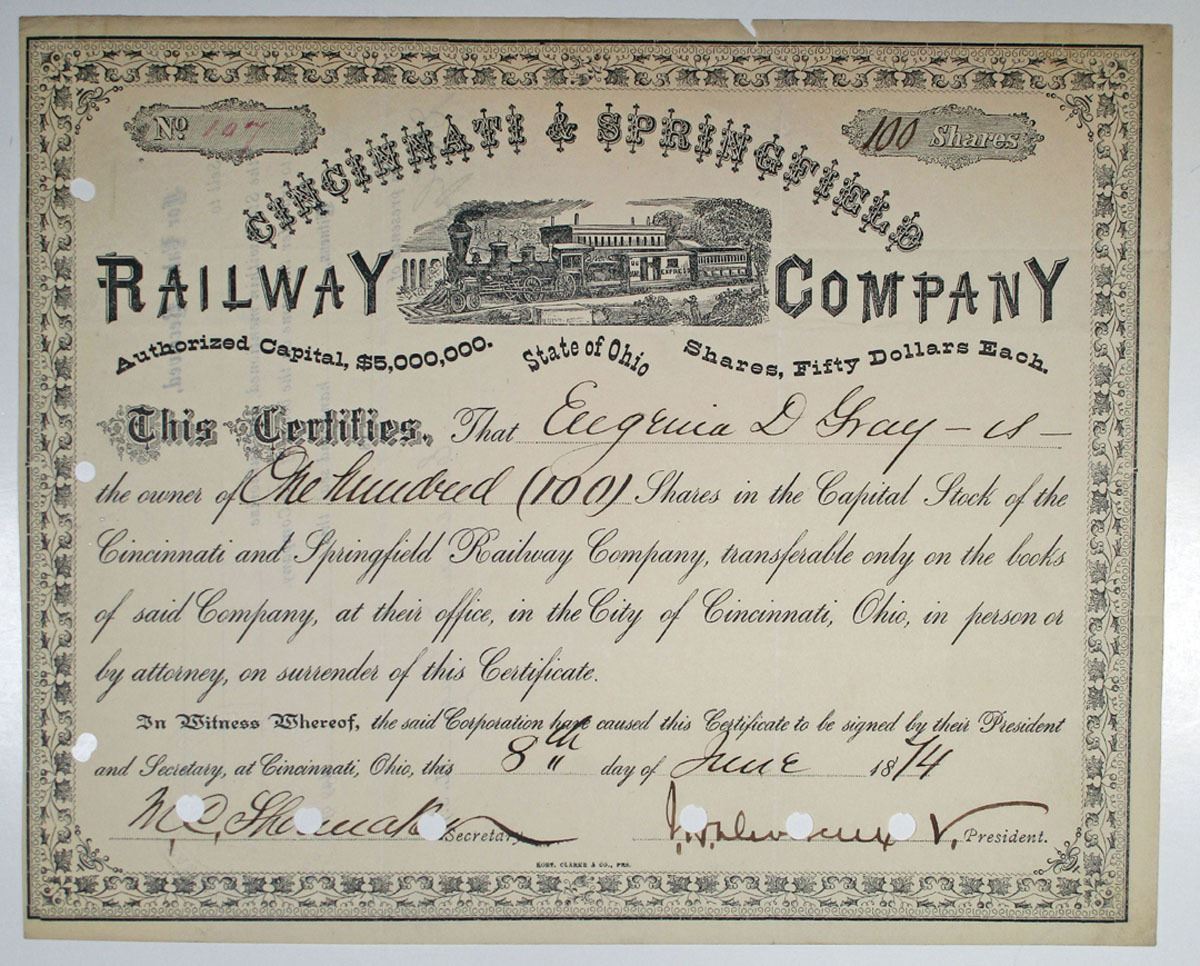 No 107
100 Shares
CINCINNATI & SPRINGFIELD
RAILWAY COMPANY
EXPRESS
Authorized Capital, $5,000,000. State of Ohio Shares, Fifty Dollars Each.
This Certifies, That Eugenia D Gray - is -
the owner of One hundred (100) Shares in the Capital Stock of the
Cincinnati and Springfield Railway Company, transferable only on the books
of said Company, at their office, in the City of Cincinnati, Ohio, in person or
by attorney, on surrender of this Certificate.
In Witness Whereof, the said Corporation have caused this Certificate to be signed by their President
and Secretary, at Cincinnati, Ohio, this 8th day of June 1874
M.C. Shoemaker Secretary V. President.
ROBT. CLARKE & CO., PRS.